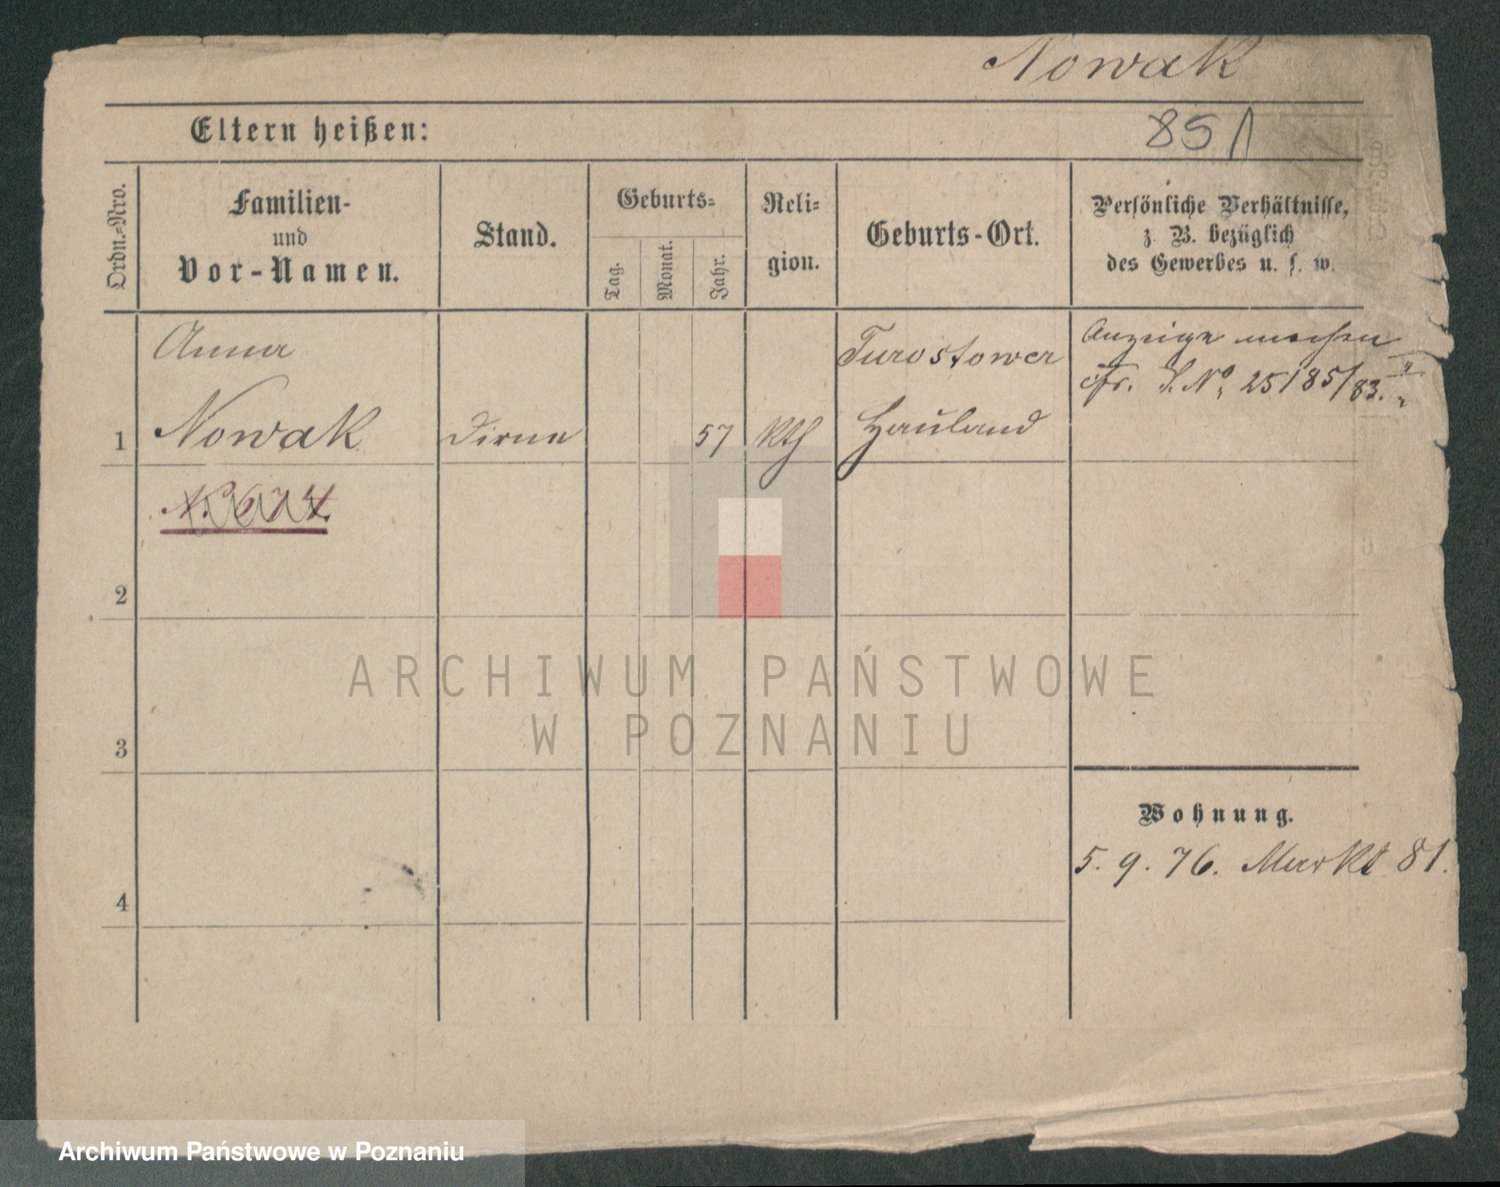 Nowak
Eltern heißen:
851
Ordn.-Nro.
Familien-
und
Vor-Namen.
Stand.
Geburts-
Tag.
Monat.
Jahr.
Reli-
gion.
Geburts-Ort.
Persönliche Verhältnisse,
z. B. bezüglich
des Gewerbes u. s. w.
Anna
Turostower
Anzeige machen
cfr. S. No. 25185/83. II
1
Nowak
Dirne
57
kth
Hauland
N. 674.
2
3
4
Wohnung.
5. 9. 76. Markt 81.
ARCHIWUM PAŃSTWOWE
W POZNANIU
Archiwum Państwowe w Poznaniu